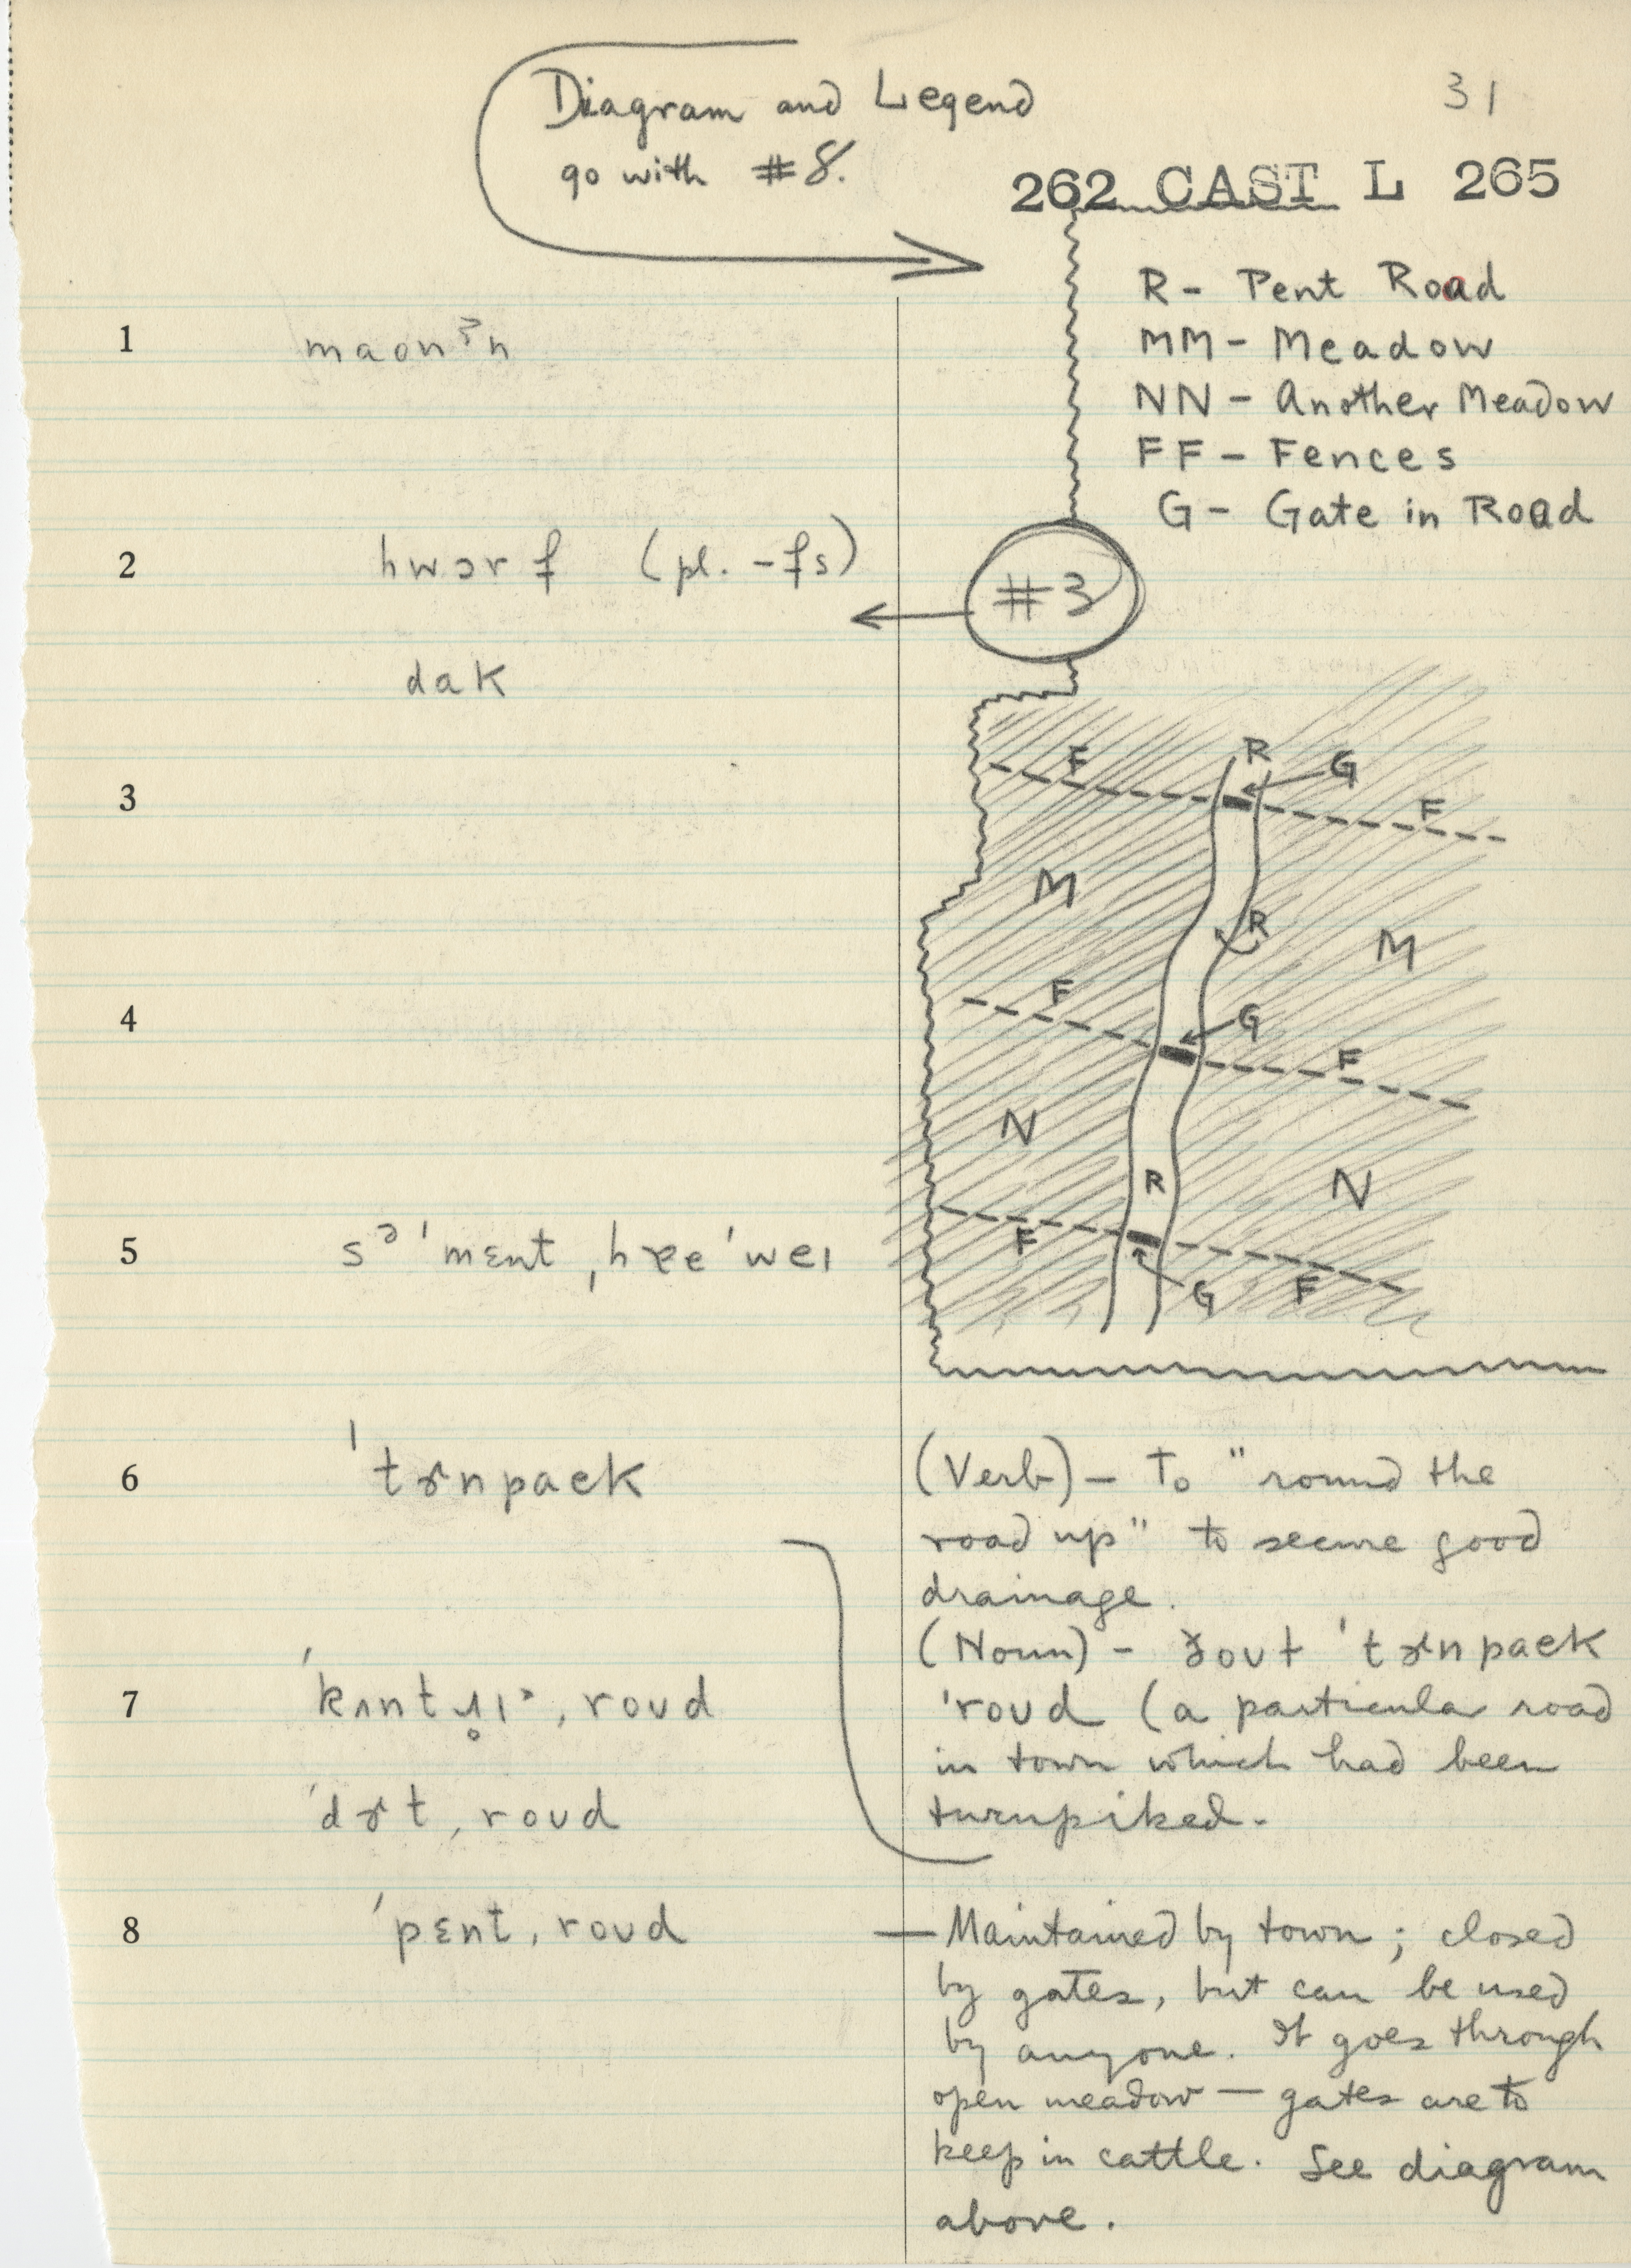 Diagram and Legend
go with #8.
31
262 CAST L 265
R - Pent Road
MM - Meadow
NN - Another Meadow
FF - Fences
G - Gate in Road
1
2 hwɔrf (pl. -fs)
#3
dak
3
4
5
F R G
F
M
R
M
F G
F
N
R
N
F
G F
6 'tɚnpaek
(Verb) - To "round the
road up" to secure good
drainage.
(Noun) - 'tɚnpaek
'roʊd (a particular road
in town which had been
turnpiked.
7 roʊd
'dɚt, roʊd
8 'pɛnt, roʊd
— Maintained by town; closed
by gates, but can be used
by anyone. It goes through
open meadow — gates are to
keep in cattle. See diagram
above.